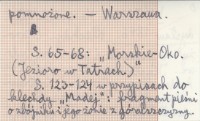 pomnożone. — Warszawa.
S. 65-68: „Morskie-Oko.
(Jezioro w Tatrach)"
S. 123-124 w przypisach do
klechdy „Madej": fragment pieśni
o zbójniku i jego żonie z góralszczyzny.